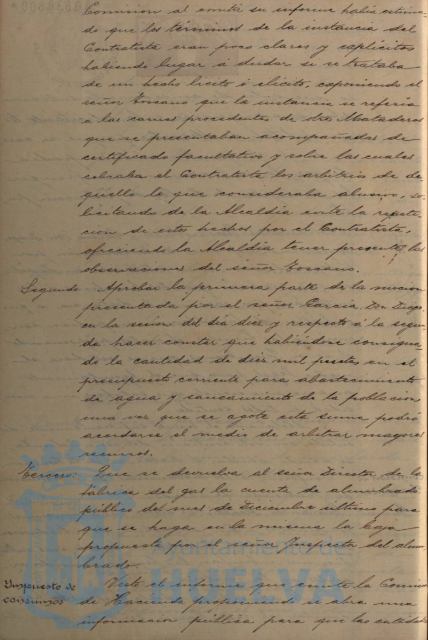 Comision al emitir su informe habia estima-
do que los términos de la instancia del
Contratista eran poco claros y explícitos
habiendo lugar á dudar si se trataba
de un hecho lícito ó ilícito, exponiendo el
señor Toscano que la instancia se referia
á las carnes procedentes de otros Mataderos
que se presentaban acompañadas de
certificado facultativo y sobre las cuales
cobraba el Contratista los arbitrios de de
güello lo que consideraba abusivo, so-
licitando de la Alcaldia evite la repeti-
cion de estos hechos por el Contratista,
ofreciendo la Alcaldia tener presente las
observaciones del señor Toscano.
Segundo. Aprobar la primera parte de la mocion
presentada por el señor Garcia, Don Diego,
en la sesion del dia diez y respecto á la segun-
da hacer constar que habiéndose consigna-
do la cantidad de diez mil pesetas en el
presupuesto corriente para abastecimiento
de agua y saneamiento de la poblacion
una vez que se agote esta suma podrá
acordarse el medio de arbitrar mayores
recursos.
Tercero. Que se devuelva al señor Director de la
fábrica del gas la cuenta de alumbrado
público del mes de Diciembre último para
que se haga en la misma la baja
propuesta por el señor Inspector del alum-
brado.
Impuesto de
consumos
Visto el informe que emite la Comision
de Hacienda proponiendo se abra una
informacion pública para que las entidades
Ayuntamiento de
HUELVA